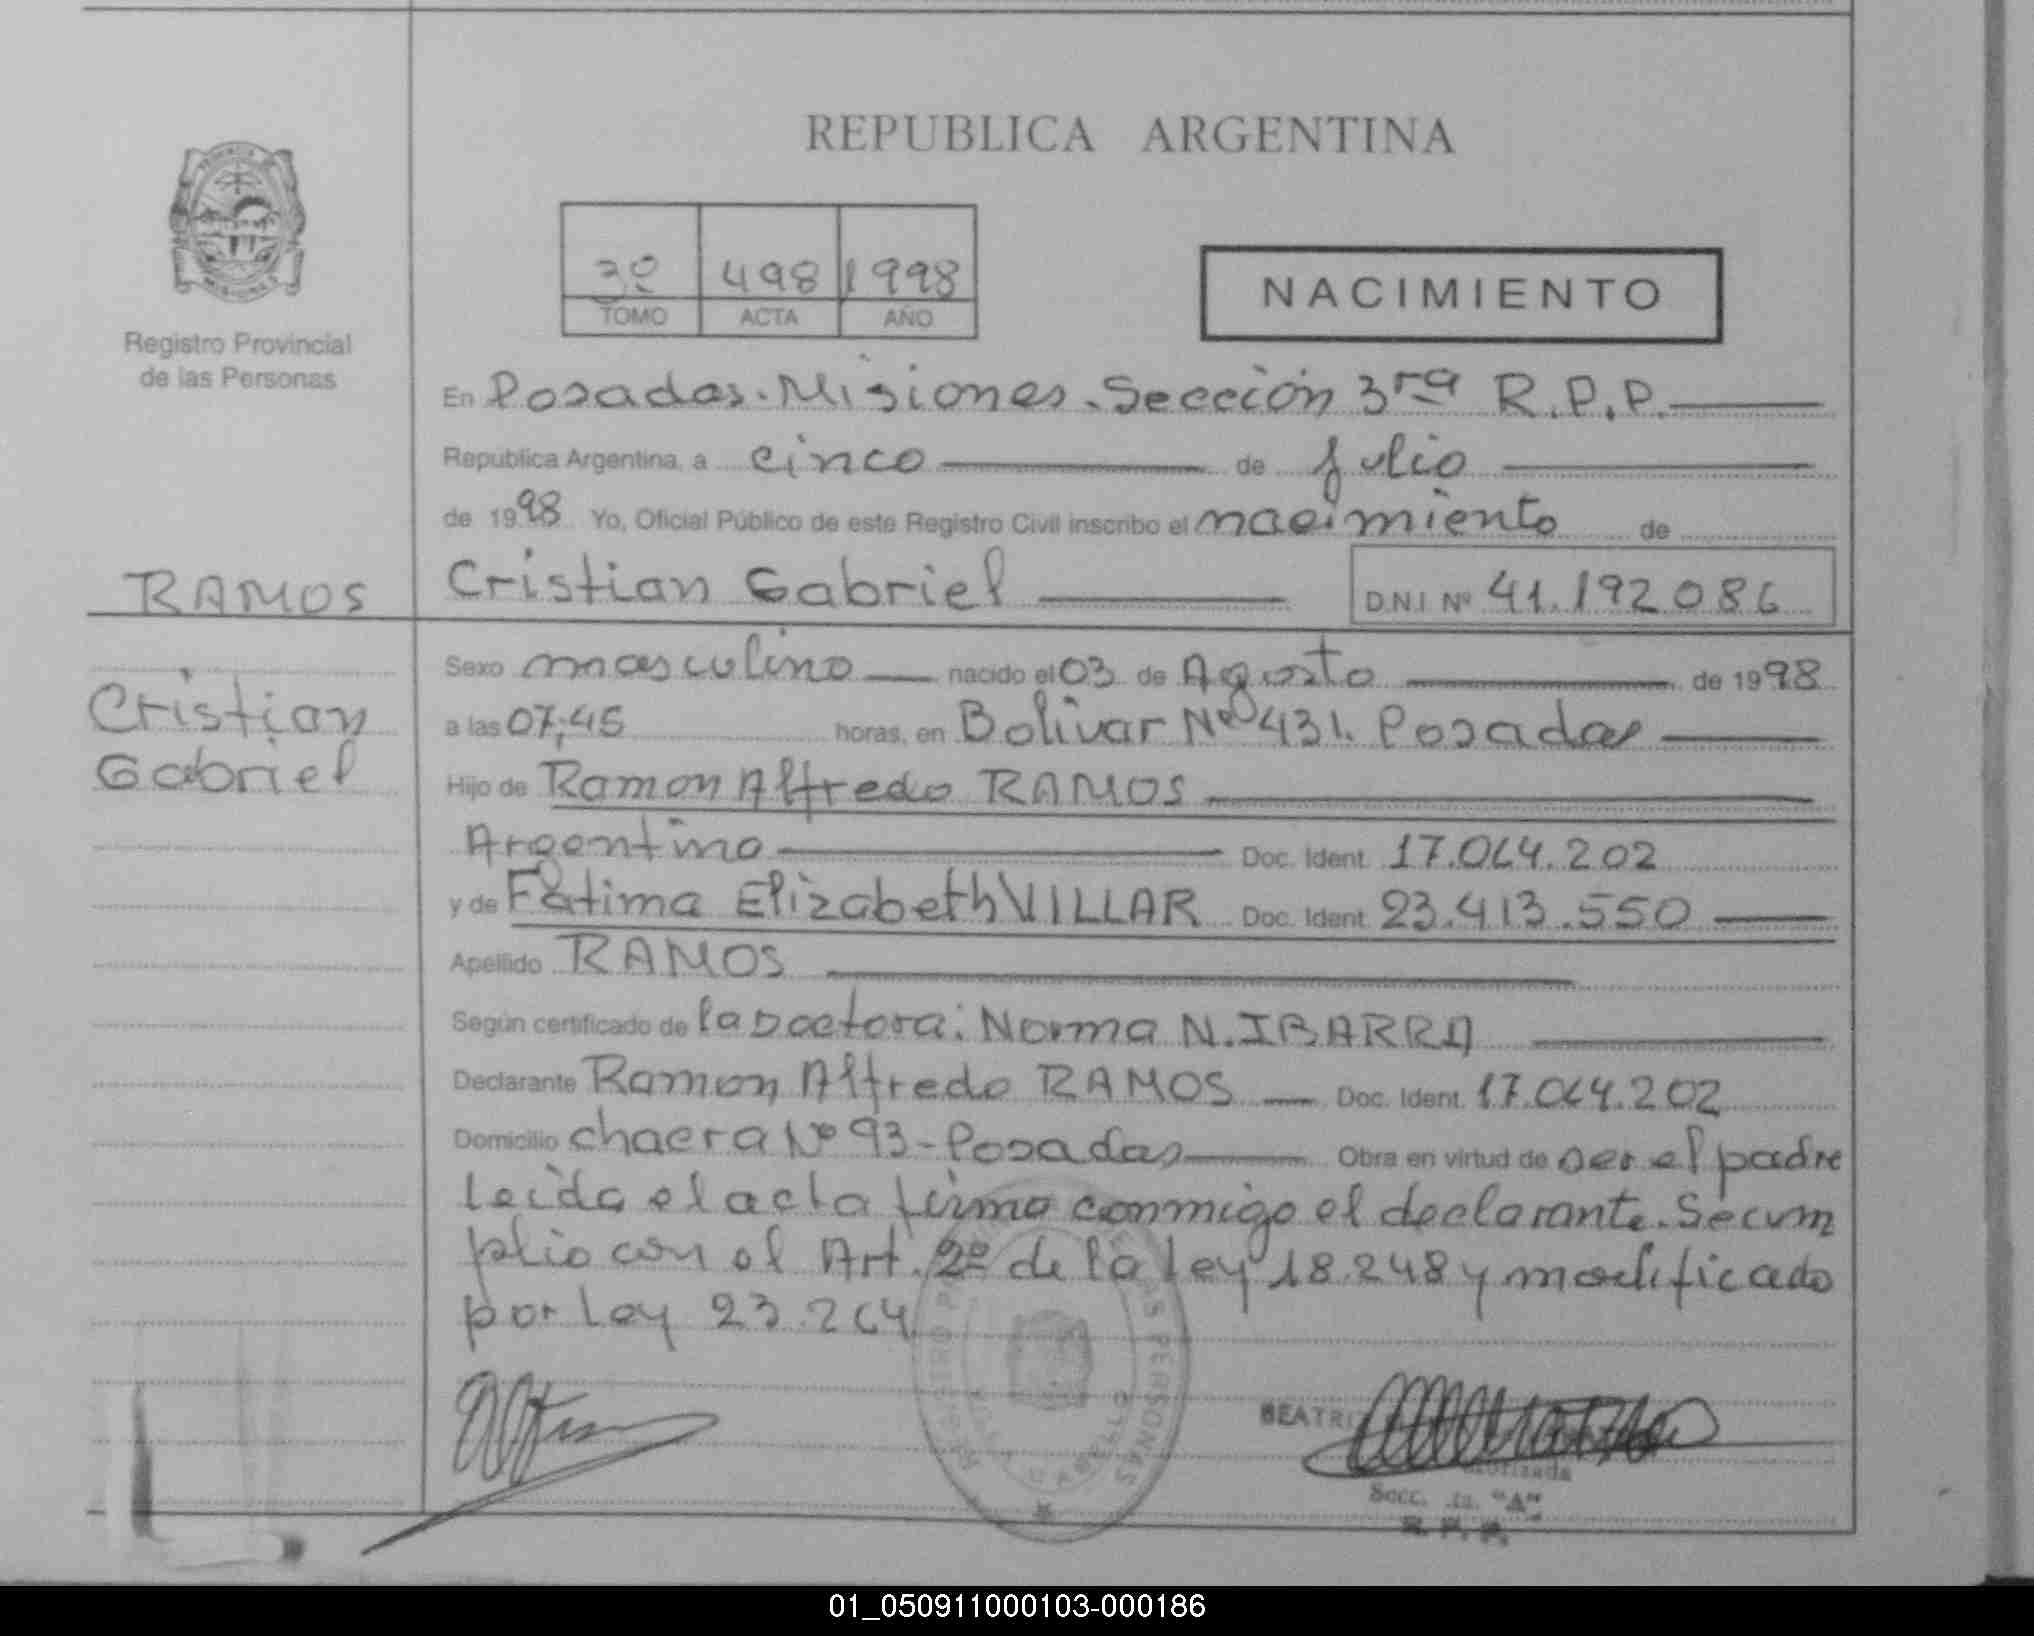 REPUBLICA ARGENTINA
3º 498 1998
TOMO ACTA AÑO
NACIMIENTO
Registro Provincial
de las Personas
En Posadas. Misiones. Sección 3ra R.P.P.
Republica Argentina, a cinco de julio
de 1998 Yo, Oficial Público de este Registro Civil inscribo el nacimiento de
RAMOS
Cristian Gabriel
D.N.I Nº 41.192086
Cristian
Gabriel
Sexo masculino nacido el 03 de Agosto de 1998
a las 07:45 horas, en Bolivar Nº 431. Posadas
Hijo de Ramon Alfredo RAMOS
Argentino Doc. Ident. 17.064.202
y de Fátima Elizabeth VILLAR Doc. Ident. 23.413.550
Apellido RAMOS
Según certificado de la Doctora: Norma N. IBARRA
Declarante Ramon Alfredo RAMOS Doc. Ident. 17.064.202
Domicilio chacra Nº 93-Posadas Obra en virtud de ser el padre
Leída el acta firma conmigo el declarante. Secum
plio con el Art. 2º de la Ley 18.248 y modificado
por Ley 23.264
PERSONAS
BEATRI
Secc. "A"
R. P. P.
01_050911000103-000186